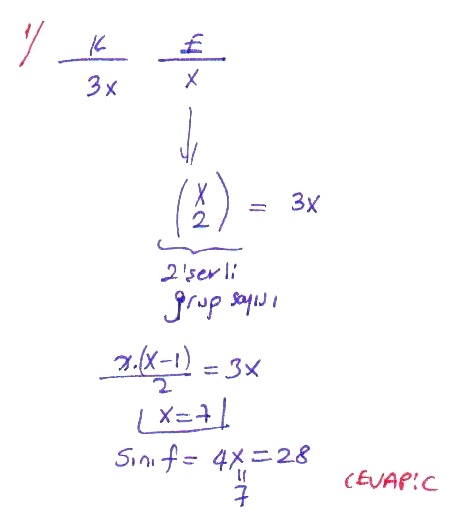 1/
K E
3x x
(x 2) = 3x
2'şerli
grup sayısı
x.(x-1)/2 = 3x
x=7
Sınıf = 4x = 28
7
CEVAP: C